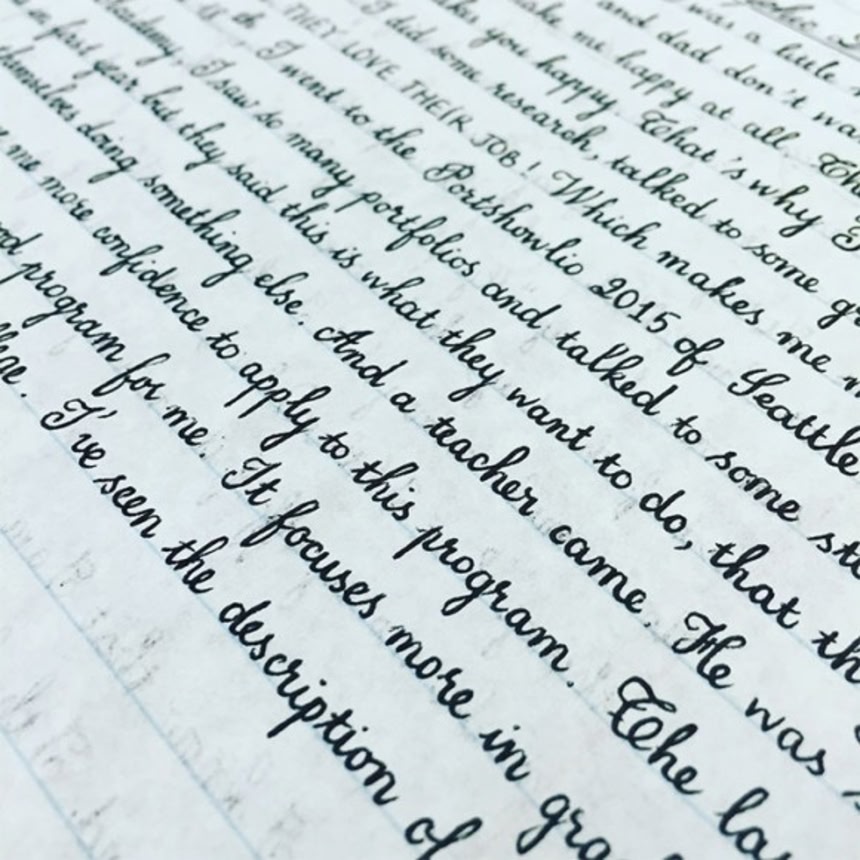 was a little
and dad don't
me happy at all.
you happy. That's why I
I did some research, talked to some
THEY LOVE THEIR JOB! Which makes me
I went to the Portshowlio 2015 of Seattle
I saw so many portfolios and talked to some
first year but they said this is what they want to do, that
themselves doing something else. And a teacher came. He was
me more confidence to apply to this program. The
program for me. It focuses more in
I've seen the description of